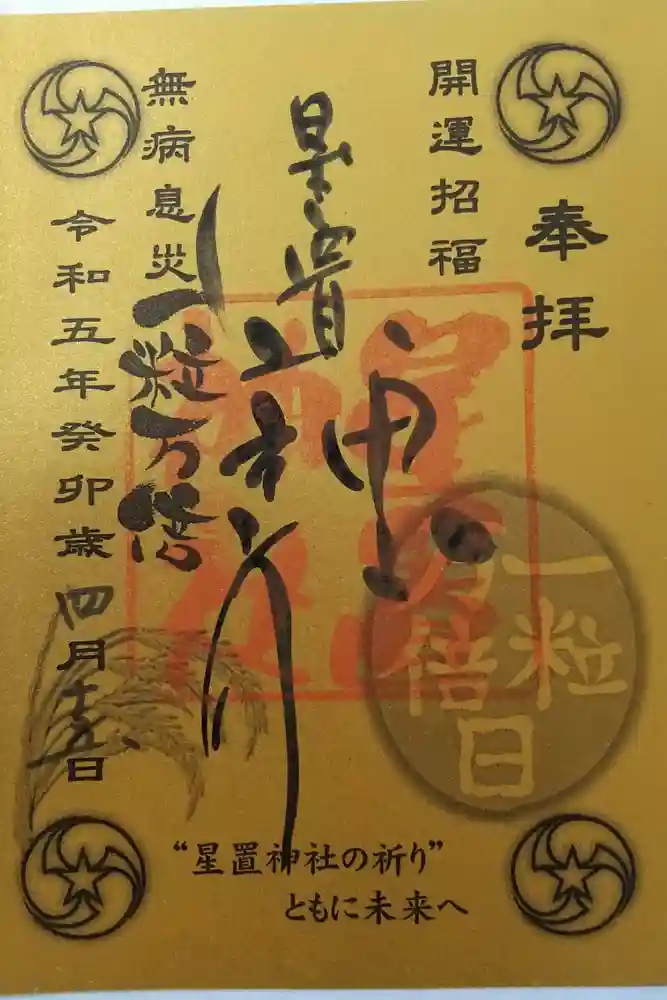 奉拝
開運招福
星置神社
無病息災
一粒万倍
令和五年癸卯歳四月十五日
一粒
万倍
日
“星置神社の祈り”
ともに未来へ